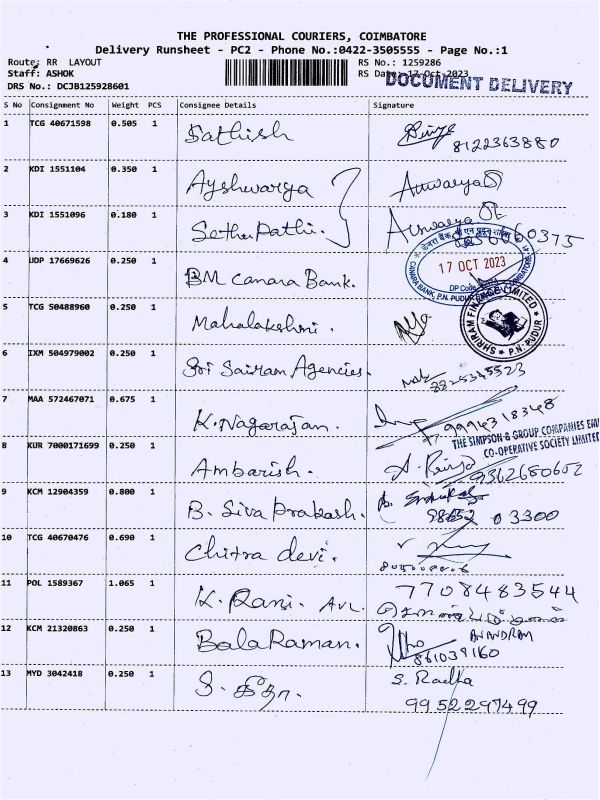 THE PROFESSIONAL COURIERS, COIMBATORE
Delivery Runsheet - PC2 - Phone No.:0422-3505555 - Page No.:1
Route: RR LAYOUT RS No.: 1259286
Staff: ASHOK RS Date: 17 Oct 2023
DOCUMENT DELIVERY
DRS No.: DCJB125928601
S No Consignment No Weight PCS Consignee Details Signature
1 TCG 40671598 0.505 1 Sathish
8122363880
2 KDI 1551104 0.350 1 Ayshwarya
3 KDI 1551096 0.180 1 Sethu Pathi.
4 UDP 17669626 0.250 1 BM Canara Bank.
17 OCT 2023
CANARA BANK, P.N. PUDUR
DP Code
5 TCG 50488960 0.250 1 Mahalakshmi.
SHRIRAM FINANCE LIMITED
P.N. PUDUR
6 IXM 504979002 0.250 1 Sri Sairam Agencies.
8825345523
7 MAA 572467071 0.675 1 K. Nagarajan.
9994318348
THE SIMPSON & GROUP COMPANIES
CO-OPERATIVE SOCIETY LIMITED
8 KUR 7000171699 0.250 1 Ambarish.
9362680602
9 KCM 12904359 0.800 1 B. Siva Prakash.
03300
10 TCG 40670476 0.690 1 Chitra devi.
11 POL 1589367 1.065 1 K. Rani. AVL 7708483544
12 KCM 21320863 0.250 1 BalaRaman. ANANDRAM
8610391160
13 MYD 3042418 0.250 1 S. Radha
9952297499